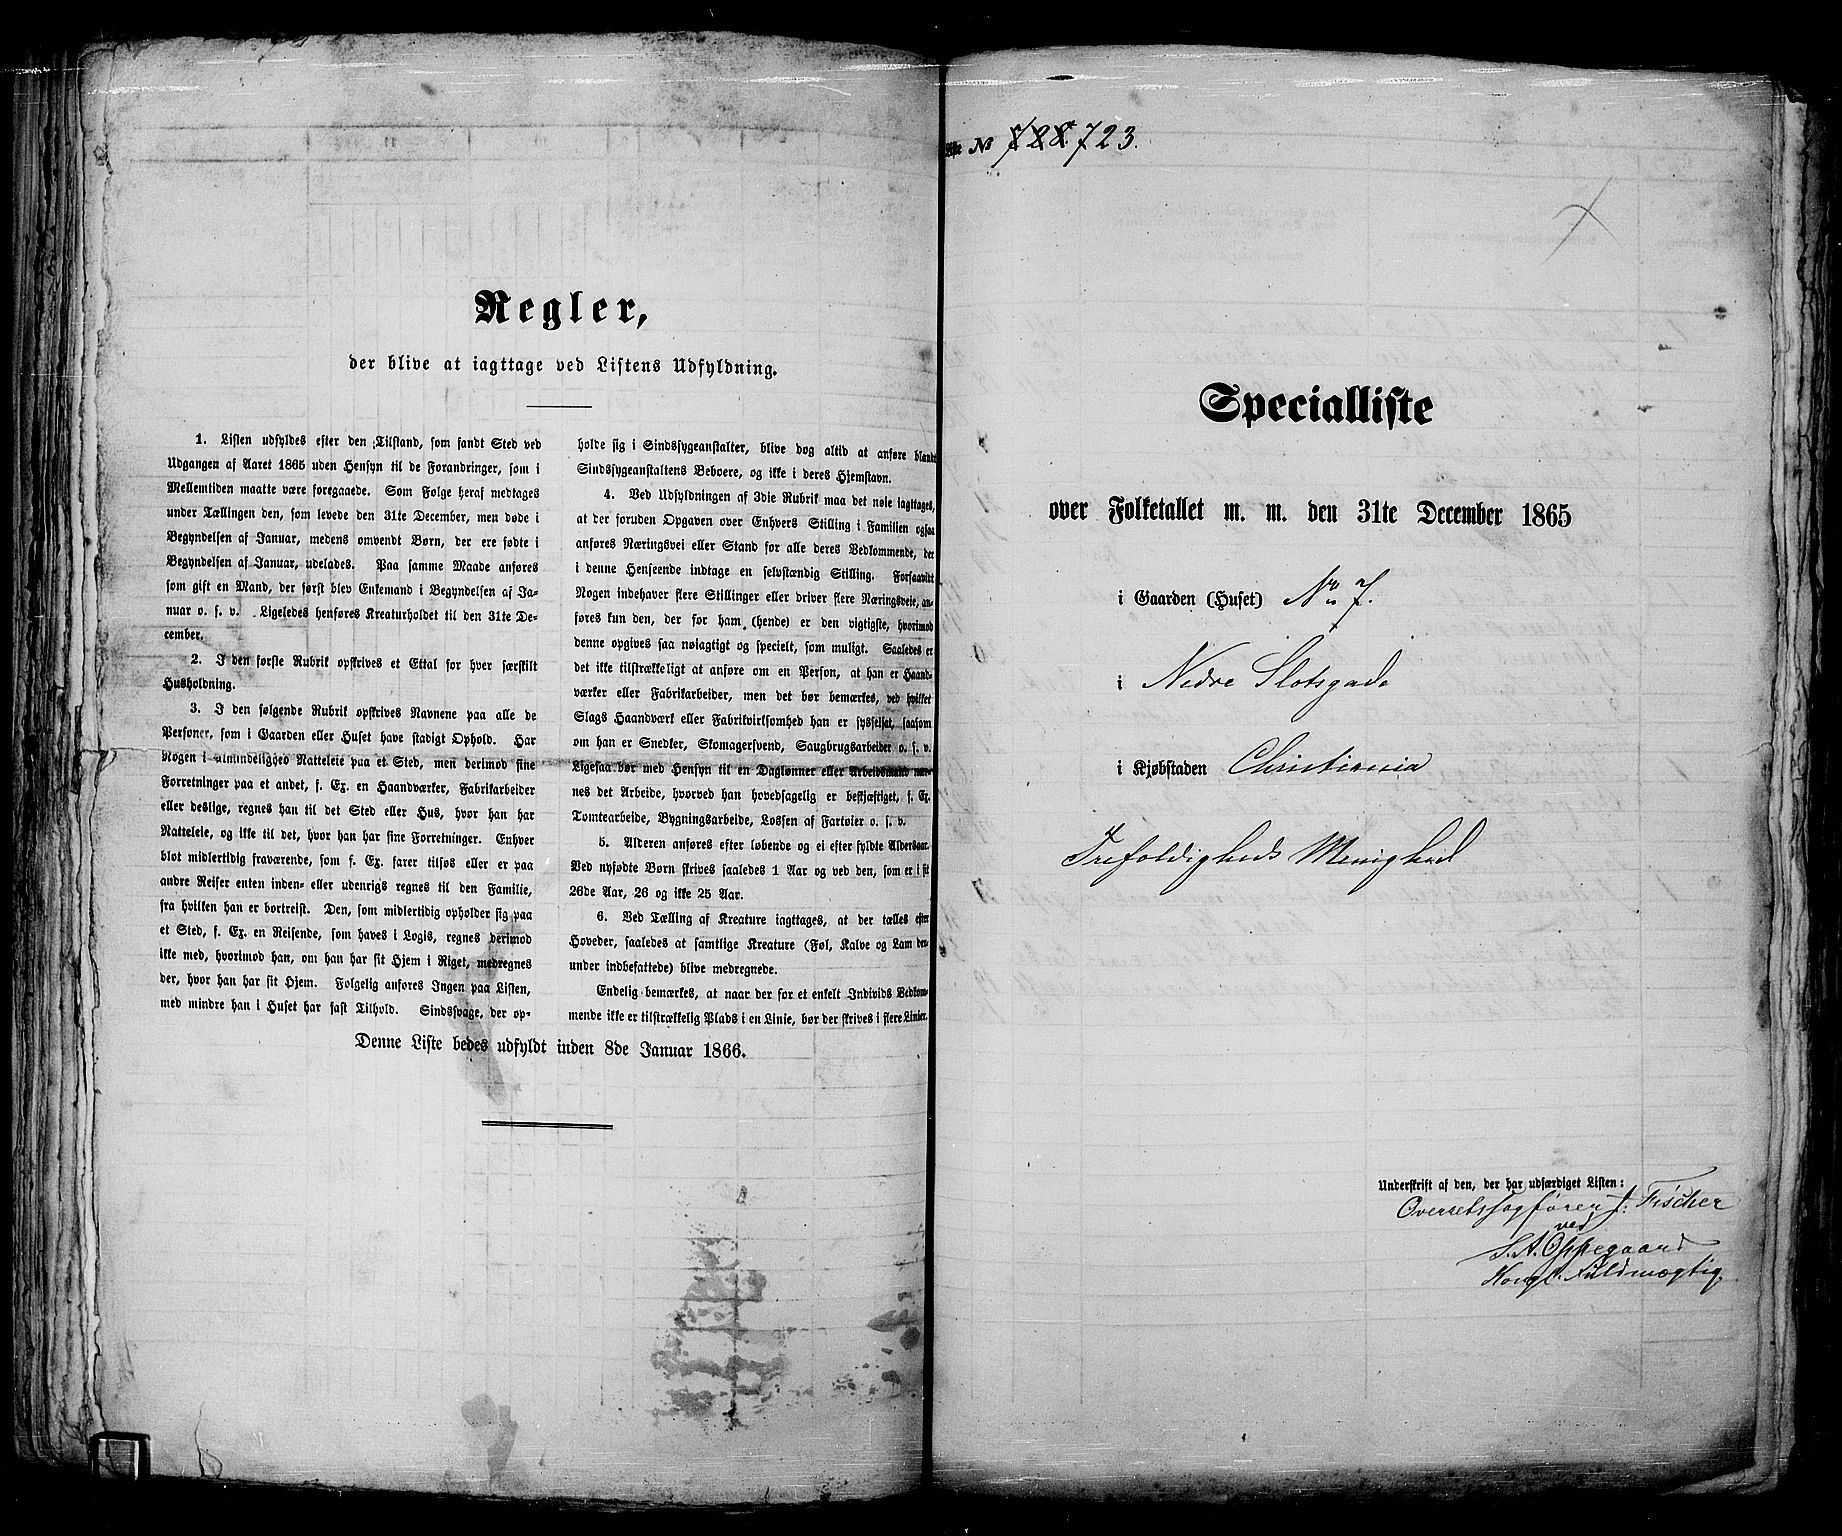 Regler,
der blive at iagttage ved Listens Udfyldning.
1. Listen udfyldes efter den Tilstand, som fandt Sted ved
Udgangen af Aaret 1865 uden Hensyn til de Forandringer, som i
Mellemtiden maatte være foregaaede. Som Følge heraf medtages
under Tællingen den, som levede den 31te December, men døde i
Begyndelsen af Januar, medens omvendt Børn, der ere fødte i
Begyndelsen af Januar, udelades. Paa samme Maade anføres
som gift en Mand, der først blev Enkemand i Begyndelsen af Ja-
nuar o. s. v. Ligeledes henføres Kreaturholdet til den 31te De-
cember.
2. I den første Rubrik opskrives et Ettal for hver særskilt
Husholdning.
3. I den følgende Rubrik opskrives Navnene paa alle de
Personer, som i Gaarden eller Huset have stadigt Ophold. Har
Nogen i Almindelighed Natteleie paa et Sted, men derimod sine
Forretninger paa et andet, f. Ex. en Haandværker, Fabrikarbeider
eller deslige, regnes han til det Sted eller Hus, hvor han har
Natteleie, og ikke til det, hvor han har sine Forretninger. Enhver
blot midlertidig fraværende, som f. Ex. farer tilsøs eller er paa
andre Reiser enten inden- eller udenrigs regnes til den Familie,
fra hvilken han er bortreist. Den, som midlertidig opholder sig paa
et Sted, f. Ex. en Reisende, som haves i Logis, regnes derimod
ikke med, hvorimod han, om han har sit Hjem i Riget, medregnes
der, hvor han har sit Hjem. Følgelig anføres Ingen paa Listen,
med mindre han i Huset har fast Tilhold. Sindssvage, der op-
holde sig i Sindssygeanstalter, blive dog altid at anføre blandt
Sindssygeanstaltens Beboere, og ikke i deres Hjemstavn.
4. Ved Udfyldningen af 3die Rubrik maa det nøie iagttages,
at der foruden Opgaven over Enhvers Stilling i Familien ogsaa
anføres Næringsvei eller Stand for alle deres Vedkommende, der
i denne Henseende indtage en selvstændig Stilling. Forsaavidt
Nogen indehaver flere Stillinger eller driver flere Næringsveie, an-
føres kun den, der for ham (hende) er den vigtigste, hvorimod
denne opgives saa nøiagtigt og specielt, som muligt. Saaledes er
det ikke tilstrækkeligt at anføre om en Person, at han er Haand-
værker eller Fabrikarbeider, men det bør bemærkes, ved hvilket
Slags Haandværk eller Fabrikvirksomhed han er sysselsat, saasom
om han er Snedker, Skomagersvend, Saugbrugsarbeider o. s. v.
Ligesaa bør med Hensyn til en Daglønner eller Arbeidsmand næv-
nes det Arbeide, hvorved han hovedsagelig er beskjæftiget, f. Ex.
Tomtearbeide, Bygningsarbeide, Lossen af Fartøier o. s. v.
5. Alderen anføres efter løbende og ei efter fyldte Aldersaar.
Ved nyfødte Børn skrives saaledes 1 Aar og ved den, som er i sit
26de Aar, 26 og ikke 25 Aar.
6. Ved Tælling af Kreature iagttages, at der tælles efter
Hoveder, saaledes at samtlige Kreature (Føl, Kalve og Lam der-
under indbefattede) blive medregnede.
Endelig bemærkes, at naar der for et enkelt Individs Vedkom-
mende ikke er tilstrækkelig Plads i en Linie, bør der skrives i flere Linier.
Denne Liste bedes udfyldt inden 8de Januar 1866.
№ 723.
Specialliste
over Folketallet m. m. den 31te December 1865
i Gaarden (Huset) No 7.
i Nedre Slotsgade
i Kjøbstaden Christiania
Trefoldigheds Menighed
Underskrift af den, der har udfærdiget Listen:
Overretssagfører J. Fischer
ved
S. A. Oppegaard
Kongl. Fuldmægtig.